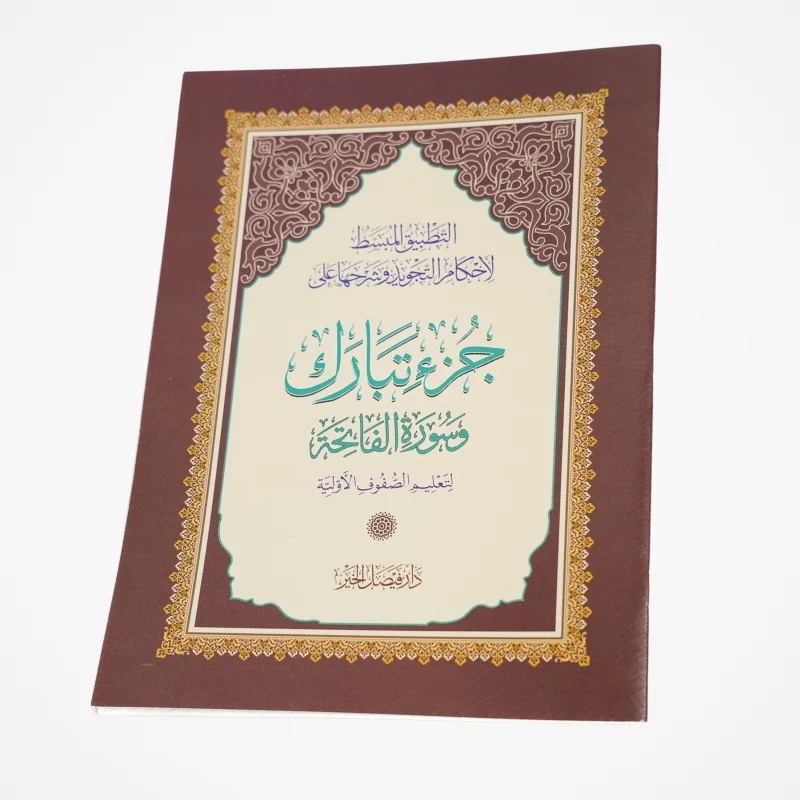 التَّطْبِيقُ المُبَسَّط
لِأَحْكَامِ التَّجْوِيدِ وَشَرْحُهَا عَلَى
جُزْءِ تَبَارَكَ
وَسُورَةِ الفَاتِحَةِ
لِتَعْلِيمِ الصُّفُوفِ الأَوَّلِيَّة
دَارُ فَيْصَلِ الخَيْر